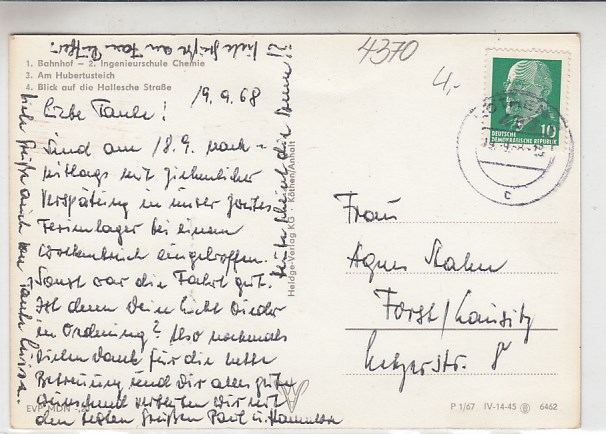 4370
4,-
1. Bahnhof – 2. Ingenieurschule Chemie
3. Am Hubertusteich
4. Blick auf die Hallesche Straße
19.9.68
Liebe Tante!
Sind am 18.9. nach-
mittags mit ziemlicher
Verspätung in unser zweites
Ferienlager bei einem
Wolkenbruch eingetroffen.
Sonst war die Fahrt gut.
Ist denn Dein Licht wieder
in Ordnung? Also nochmals
vielen Dank für die nette
Betreuung und Dir alles gute
wünschend verbleiben wir mit
den besten Grüßen Paul u. Hannelore
Viele Grüße auch von Tante Luise.
Heute scheint die Sonne!!
Viele Grüße an Frau
Heldge-Verlag KG · Köthen/Anhalt
DEUTSCHE
DEMOKRATISCHE REPUBLIK
10
KÖTHEN
c
Frau
Agnes Stahn
Forst/Lausitz
str. 8
EVP MDN -,20
P 1/67 IV-14-45 6462